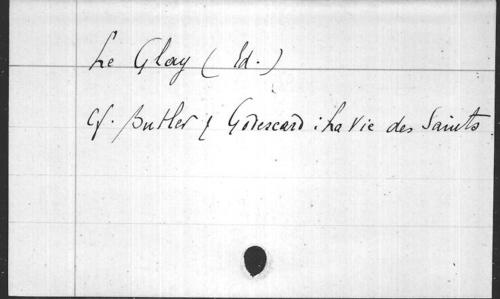 Le Glay (Ed.)
Cf. Butler & Godescard : La Vie des Saints